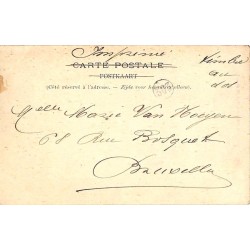 Imprimé
timbre
au
dos
CARTE POSTALE
POSTKAART
(Côté réservé à l'adresse. – Zijde voor het adres alleen.)
Melle Marie Van
68 Rue Bosquet
Bruxelles